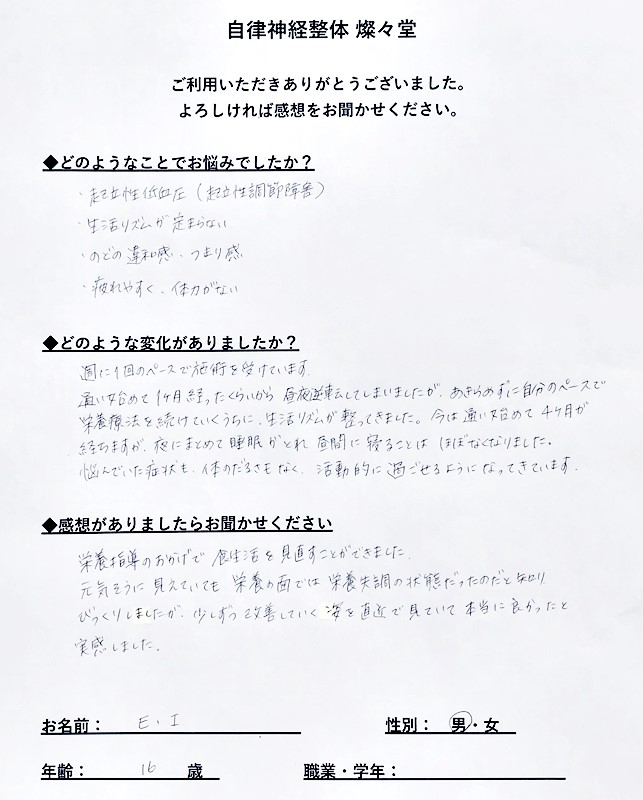 自律神経整体 燦々堂
ご利用いただきありがとうございました。
よろしければ感想をお聞かせください。
◆どのようなことでお悩みでしたか？
・起立性低血圧（起立性調節障害）
・生活リズムが定まらない
・のどの違和感・つまり感
・疲れやすく、体力がない
◆どのような変化がありましたか？
週に1回のペースで施術を受けています。
通い始めて1ヶ月経ったくらいから昼夜逆転してしまいましたが、あきらめずに自分のペースで
栄養療法を続けていくうちに、生活リズムが整ってきました。今は通い始めて4ヶ月が
経ちますが、夜にまとめて睡眠がとれ昼間に寝ることはほぼなくなりました。
悩んでいた症状も、体のだるさもなく、活動的に過ごせるようになってきています。
◆感想がありましたらお聞かせください
栄養指導のおかげで食生活を見直すことができました。
元気そうに見えていても栄養の面では栄養失調の状態だったのだと知り
びっくりしましたが、少しずつ改善していく姿を直近で見ていて本当に良かったと
実感しました。
お名前： E・I 性別： 男・女
年齢： 16 歳 職業・学年：